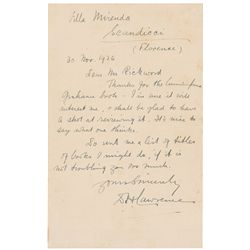 Villa Mirenda
Scandicci
(Florence)
30 Nov. 1926
Dear Mr Rickword
Thanks for the Cunninghame
Grahame book - I'm sure it will
interest me, & shall be glad to have
a shot at reviewing it. It's nice to
say what one thinks.
Do send me a list of titles
of books I might do, if it is
not troubling you too much.
Yours Sincerely
D H Lawrence